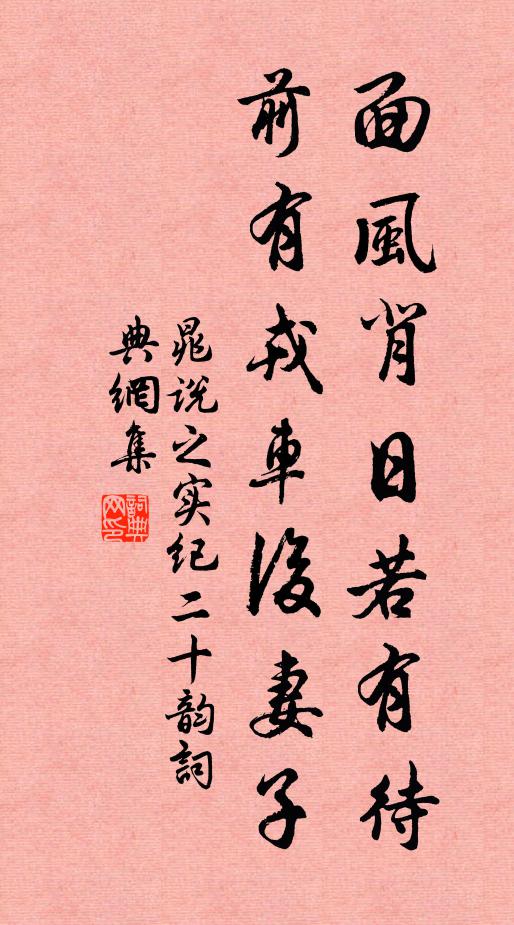 面風背日若有待
前有戎車後妻子
晁说之实纪二十韵詞
典網集
詞典网印